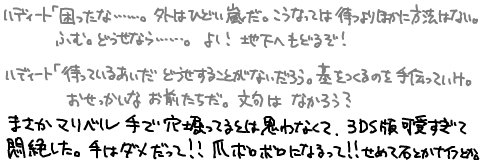 ハディート「困ったな……。外はひどい嵐だ。こうなっては待つよりほかに方法はない。
ふむ。どうせなら……。よし！地下へもどるぞ！
ハディート「待っているあいだどうせすることがないだろう。墓をつくるのを手伝っていけ。
おせっかいなお前たちだ。文句はなかろう？
まさかマリベル手で穴掘ってるとは思わなくて、3DS版可愛すぎて
悶絶した。手はダメだって!!爪ボロボロになるって!!せめて石とか木片とか